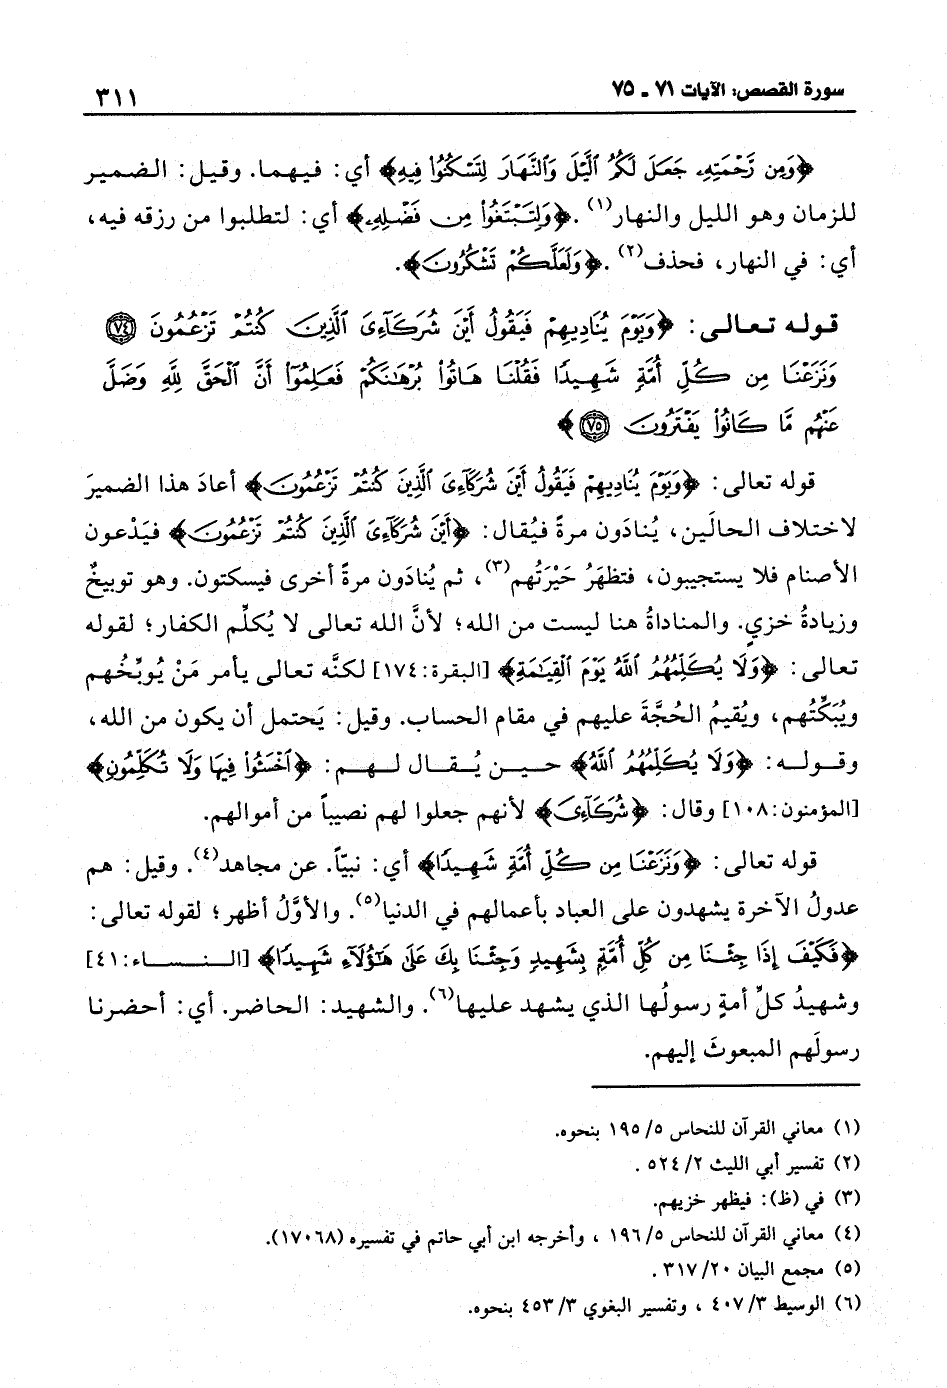 سورة القصص: الآيات ٧١ ـ ٧٥
٣١١
﴿وَمِن رَّحْمَتِهِۦ جَعَلَ لَكُمُ ٱلَّيْلَ وَٱلنَّهَارَ لِتَسْكُنُوا۟ فِيهِ﴾ أي: فيهما. وقيل: الضمير
للزمان وهو الليل والنهار(١). ﴿وَلِتَبْتَغُوا۟ مِن فَضْلِهِۦ﴾ أي: لتطلبوا من رزقه فيه،
أي: في النهار، فحذف(٢). ﴿وَلَعَلَّكُمْ تَشْكُرُونَ﴾.
قوله تعالى: ﴿وَيَوْمَ يُنَادِيهِمْ فَيَقُولُ أَيْنَ شُرَكَآءِىَ ٱلَّذِينَ كُنتُمْ تَزْعُمُونَ ﴿٧٤﴾
وَنَزَعْنَا مِن كُلِّ أُمَّةٍ شَهِيدًا فَقُلْنَا هَاتُوا۟ بُرْهَٰنَكُمْ فَعَلِمُوٓا۟ أَنَّ ٱلْحَقَّ لِلَّهِ وَضَلَّ
عَنْهُم مَّا كَانُوا۟ يَفْتَرُونَ ﴿٧٥﴾﴾
قوله تعالى: ﴿وَيَوْمَ يُنَادِيهِمْ فَيَقُولُ أَيْنَ شُرَكَآءِىَ ٱلَّذِينَ كُنتُمْ تَزْعُمُونَ﴾ أعادَ هذا الضميرَ
لاختلاف الحالَين، يُنادَون مرةً فيُقال: ﴿أَيْنَ شُرَكَآءِىَ ٱلَّذِينَ كُنتُمْ تَزْعُمُونَ﴾ فيَدْعون
الأصنام فلا يستجيبون، فتظهَرُ حَيْرَتُهم(٣)، ثم يُنادَون مرةً أخرى فيسكتون. وهو توبيخٌ
وزيادةُ خزيٍ. والمناداةُ هنا ليست من الله؛ لأنَّ الله تعالى لا يُكلِّم الكفار؛ لقوله
تعالى: ﴿وَلَا يُكَلِّمُهُمُ ٱللَّهُ يَوْمَ ٱلْقِيَٰمَةِ﴾ [البقرة:١٧٤] لكنَّه تعالى يأمر مَنْ يُوبِّخُهم
ويُبَكِّتُهم، ويُقيمُ الحُجَّةَ عليهم في مقام الحساب. وقيل: يَحتمل أن يكون من الله،
وقوله: ﴿وَلَا يُكَلِّمُهُمُ ٱللَّهُ﴾ حين يُقال لهم: ﴿ٱخْسَـُٔوا۟ فِيهَا وَلَا تُكَلِّمُونِ﴾
[المؤمنون:١٠٨] وقال: ﴿شُرَكَآءِىَ﴾ لأنهم جعلوا لهم نصيباً من أموالهم.
قوله تعالى: ﴿وَنَزَعْنَا مِن كُلِّ أُمَّةٍ شَهِيدًا﴾ أي: نبيّاً. عن مجاهد(٤). وقيل: هم
عدولُ الآخرة يشهدون على العباد بأعمالهم في الدنيا(٥). والأوَّلُ أظهر؛ لقوله تعالى:
﴿فَكَيْفَ إِذَا جِئْنَا مِن كُلِّ أُمَّةٍ بِشَهِيدٍ وَجِئْنَا بِكَ عَلَىٰ هَٰٓؤُلَآءِ شَهِيدًا﴾ [النساء:٤١]
وشهيدُ كلِّ أمةٍ رسولُها الذي يشهد عليها(٦). والشهيد: الحاضر. أي: أحضرنا
رسولَهم المبعوثَ إليهم.
(١) معاني القرآن للنحاس ١٩٥/٥ بنحوه.
(٢) تفسير أبي الليث ٥٢٤/٢ .
(٣) في (ظ): فيظهر خزيهم.
(٤) معاني القرآن للنحاس ١٩٦/٥ ، وأخرجه ابن أبي حاتم في تفسيره (١٧٠٦٨).
(٥) مجمع البيان ٣١٧/٢٠ .
(٦) الوسيط ٤٠٧/٣ ، وتفسير البغوي ٤٥٣/٣ بنحوه.